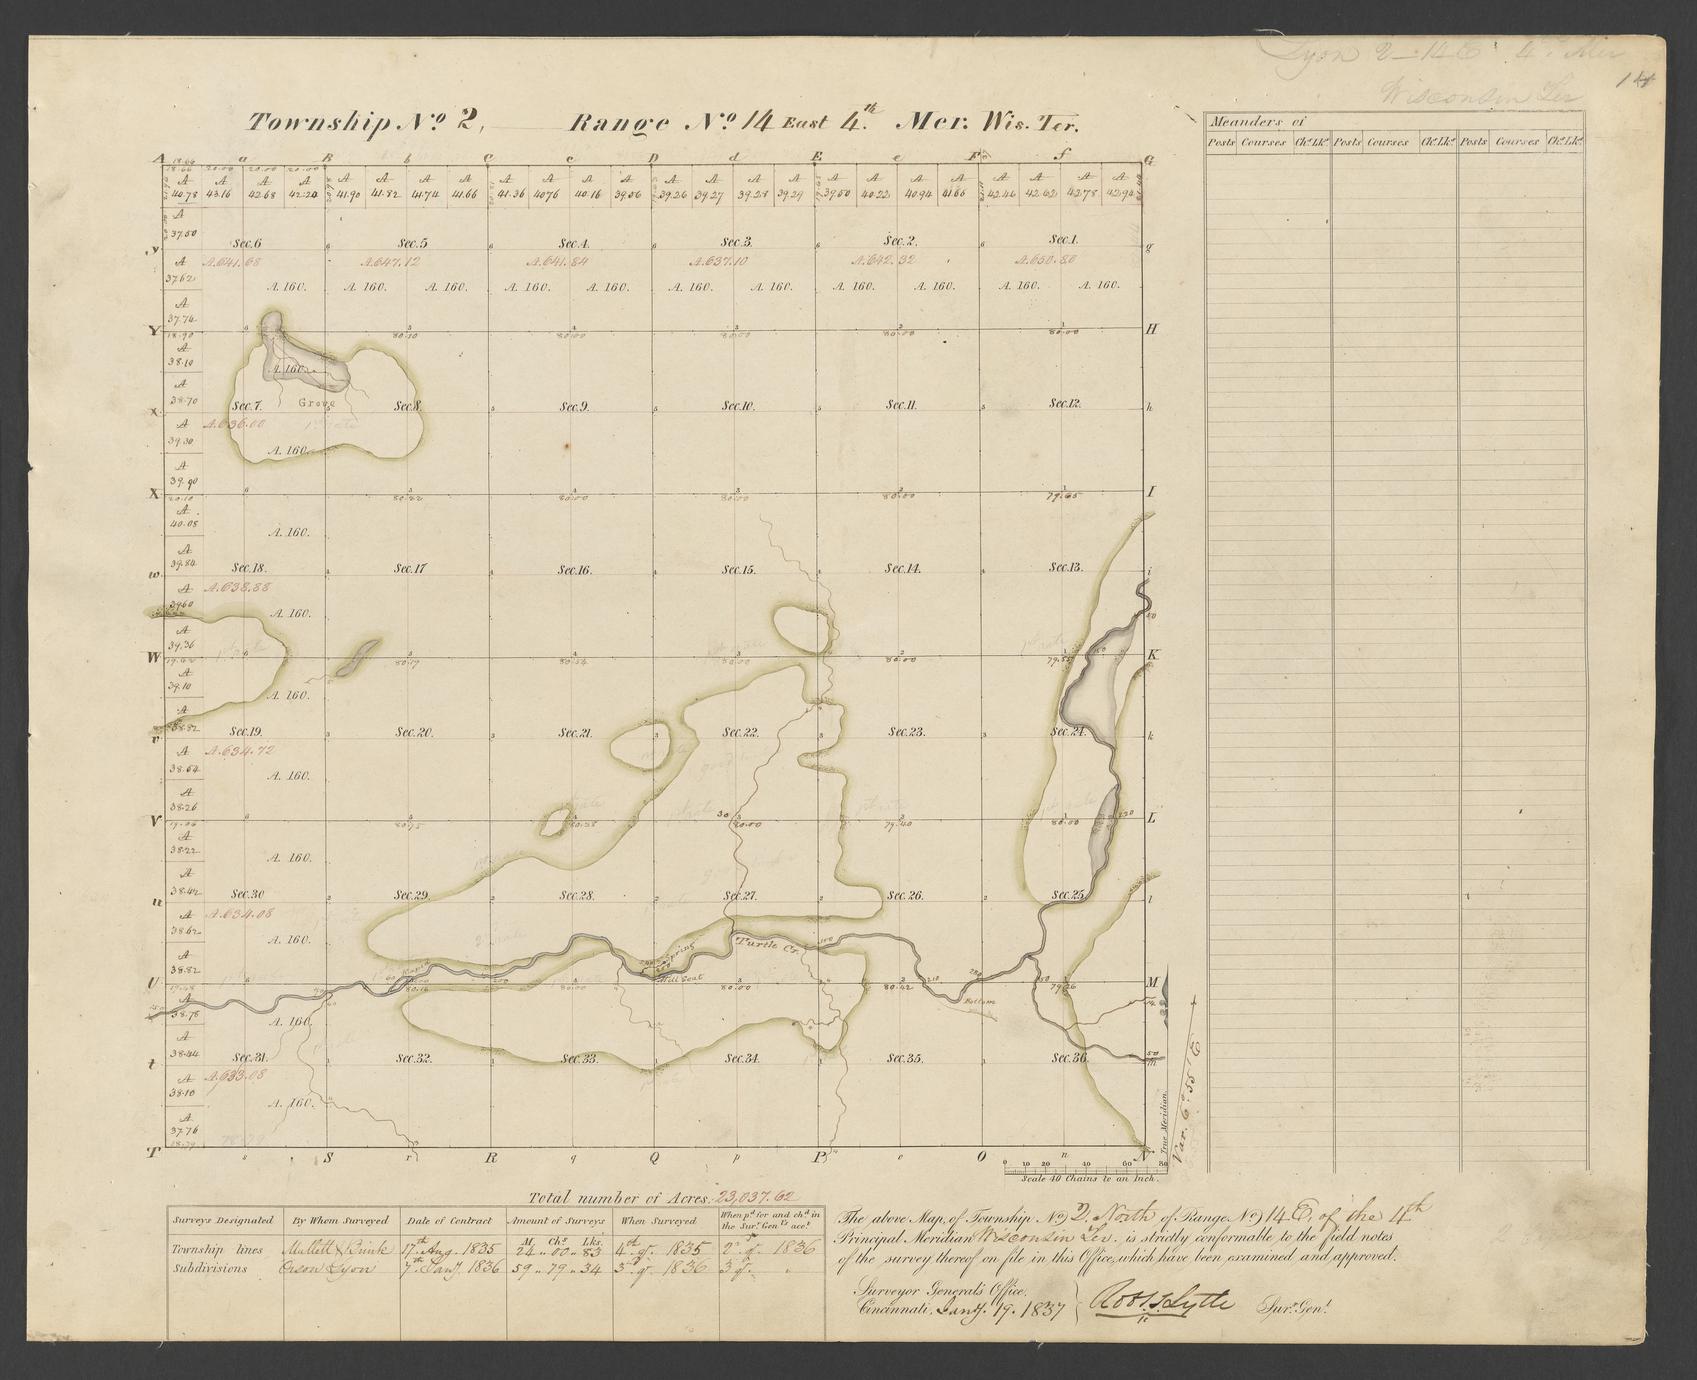 Lyon 2 — 14 E. 4th Mer
14
Wisconsin Ter
Township No. 2, Range No. 14 East 4th Mer: Wis. Ter.
Meanders of
Posts Courses Chs Lks Posts Courses Chs Lks Posts Courses Chs Lks
A a B b C c D d E e F f G
A A A A A A A A A A A A A A A A A A A A A A A A
40.78 43.16 42.68 42.24 41.90 41.82 41.74 41.66 41.36 40.76 40.16 39.56 39.26 39.27 39.28 39.29 39.50 40.22 40.94 41.66 42.46 42.62 42.78 42.94
A
37.50
y Sec. 6 Sec. 5 Sec. 4. Sec. 3. Sec. 2. Sec. 1. g
A A. 641.68 A. 647.12 A. 641.84 A. 637.10 A. 642.32 A. 650.80
37.62 A. 160. A. 160. A. 160. A. 160. A. 160. A. 160. A. 160. A. 160. A. 160. A. 160. A. 160.
A
37.74
Y 18.90 80.10 80.00 80.00 80.00 80.00 H
A
38.10 A. 160.
A
38.70 Grove
x Sec. 7. Sec. 8. Sec. 9. Sec. 10. Sec. 11. Sec. 12. h
A A. 636.00 1st rate
39.30 A. 160.
A
39.90
X 20.10 80.22 80.00 80.00 80.00 79.65 I
A
40.08 A. 160.
A
39.84
w Sec. 18. Sec. 17 Sec. 16. Sec. 15. Sec. 14. Sec. 13. i
A A. 638.88
39.60 A. 160.
A
39.36
W 80.17 80.54 80.00 80.00 79.55 K
A
39.10 A. 160.
A
38.82
v Sec. 19. Sec. 20. Sec. 21. Sec. 22. Sec. 23. Sec. 24. k
A A. 634.72
38.54 A. 160.
A
38.26
V 80.75 80.38 30 80.00 79.40 80.00 L
A
38.22 A. 160.
A
38.42
u Sec. 30 Sec. 29. Sec. 28. Sec. 27. Sec. 26. Sec. 25. l
A A. 634.08
38.62 A. 160.
Turtle Cr.
Spring
A
38.82 Rapid
Mill Seat
U 80.16 80.00 80.00 80.42 79.26 M
Bottom
A
38.78 A. 160.
A
38.44
t Sec. 31. Sec. 32. Sec. 33. Sec. 34. Sec. 35. Sec. 36. m
A A. 633.08
38.10 A. 160.
A
37.76
T s S r R q Q p P o O n N
True Meridian.
Var. 6° 55' E
0 10 20 40 60 80
Scale 40 Chains to an Inch.
Total number of Acres. 23,037.62
Surveys Designated By Whom Surveyed Date of Contract Amount of Surveys When Surveyed When pd for and chd in the Surr Genls acct
M. Chs Lks.
Township lines Mullett & Brink 17th Aug. 1835 24 " 00 " 83 4th qr. 1835 2d qr. 1836
Subdivisions Orson Lyon 7th Jany. 1836 59 " 79 " 34 3d qr. 1836 3d qr. "
The above Map, of Township No) 2, North of Range No) 14 E, of the 4th
Principal Meridian Wisconsin Ter. is strictly conformable to the field notes
of the survey thereof on file in this Office, which have been examined and approved.
Surveyor General's Office,
Cincinnati, Jany. 19. 1837 } Robt. T. Lytle Surr Genl